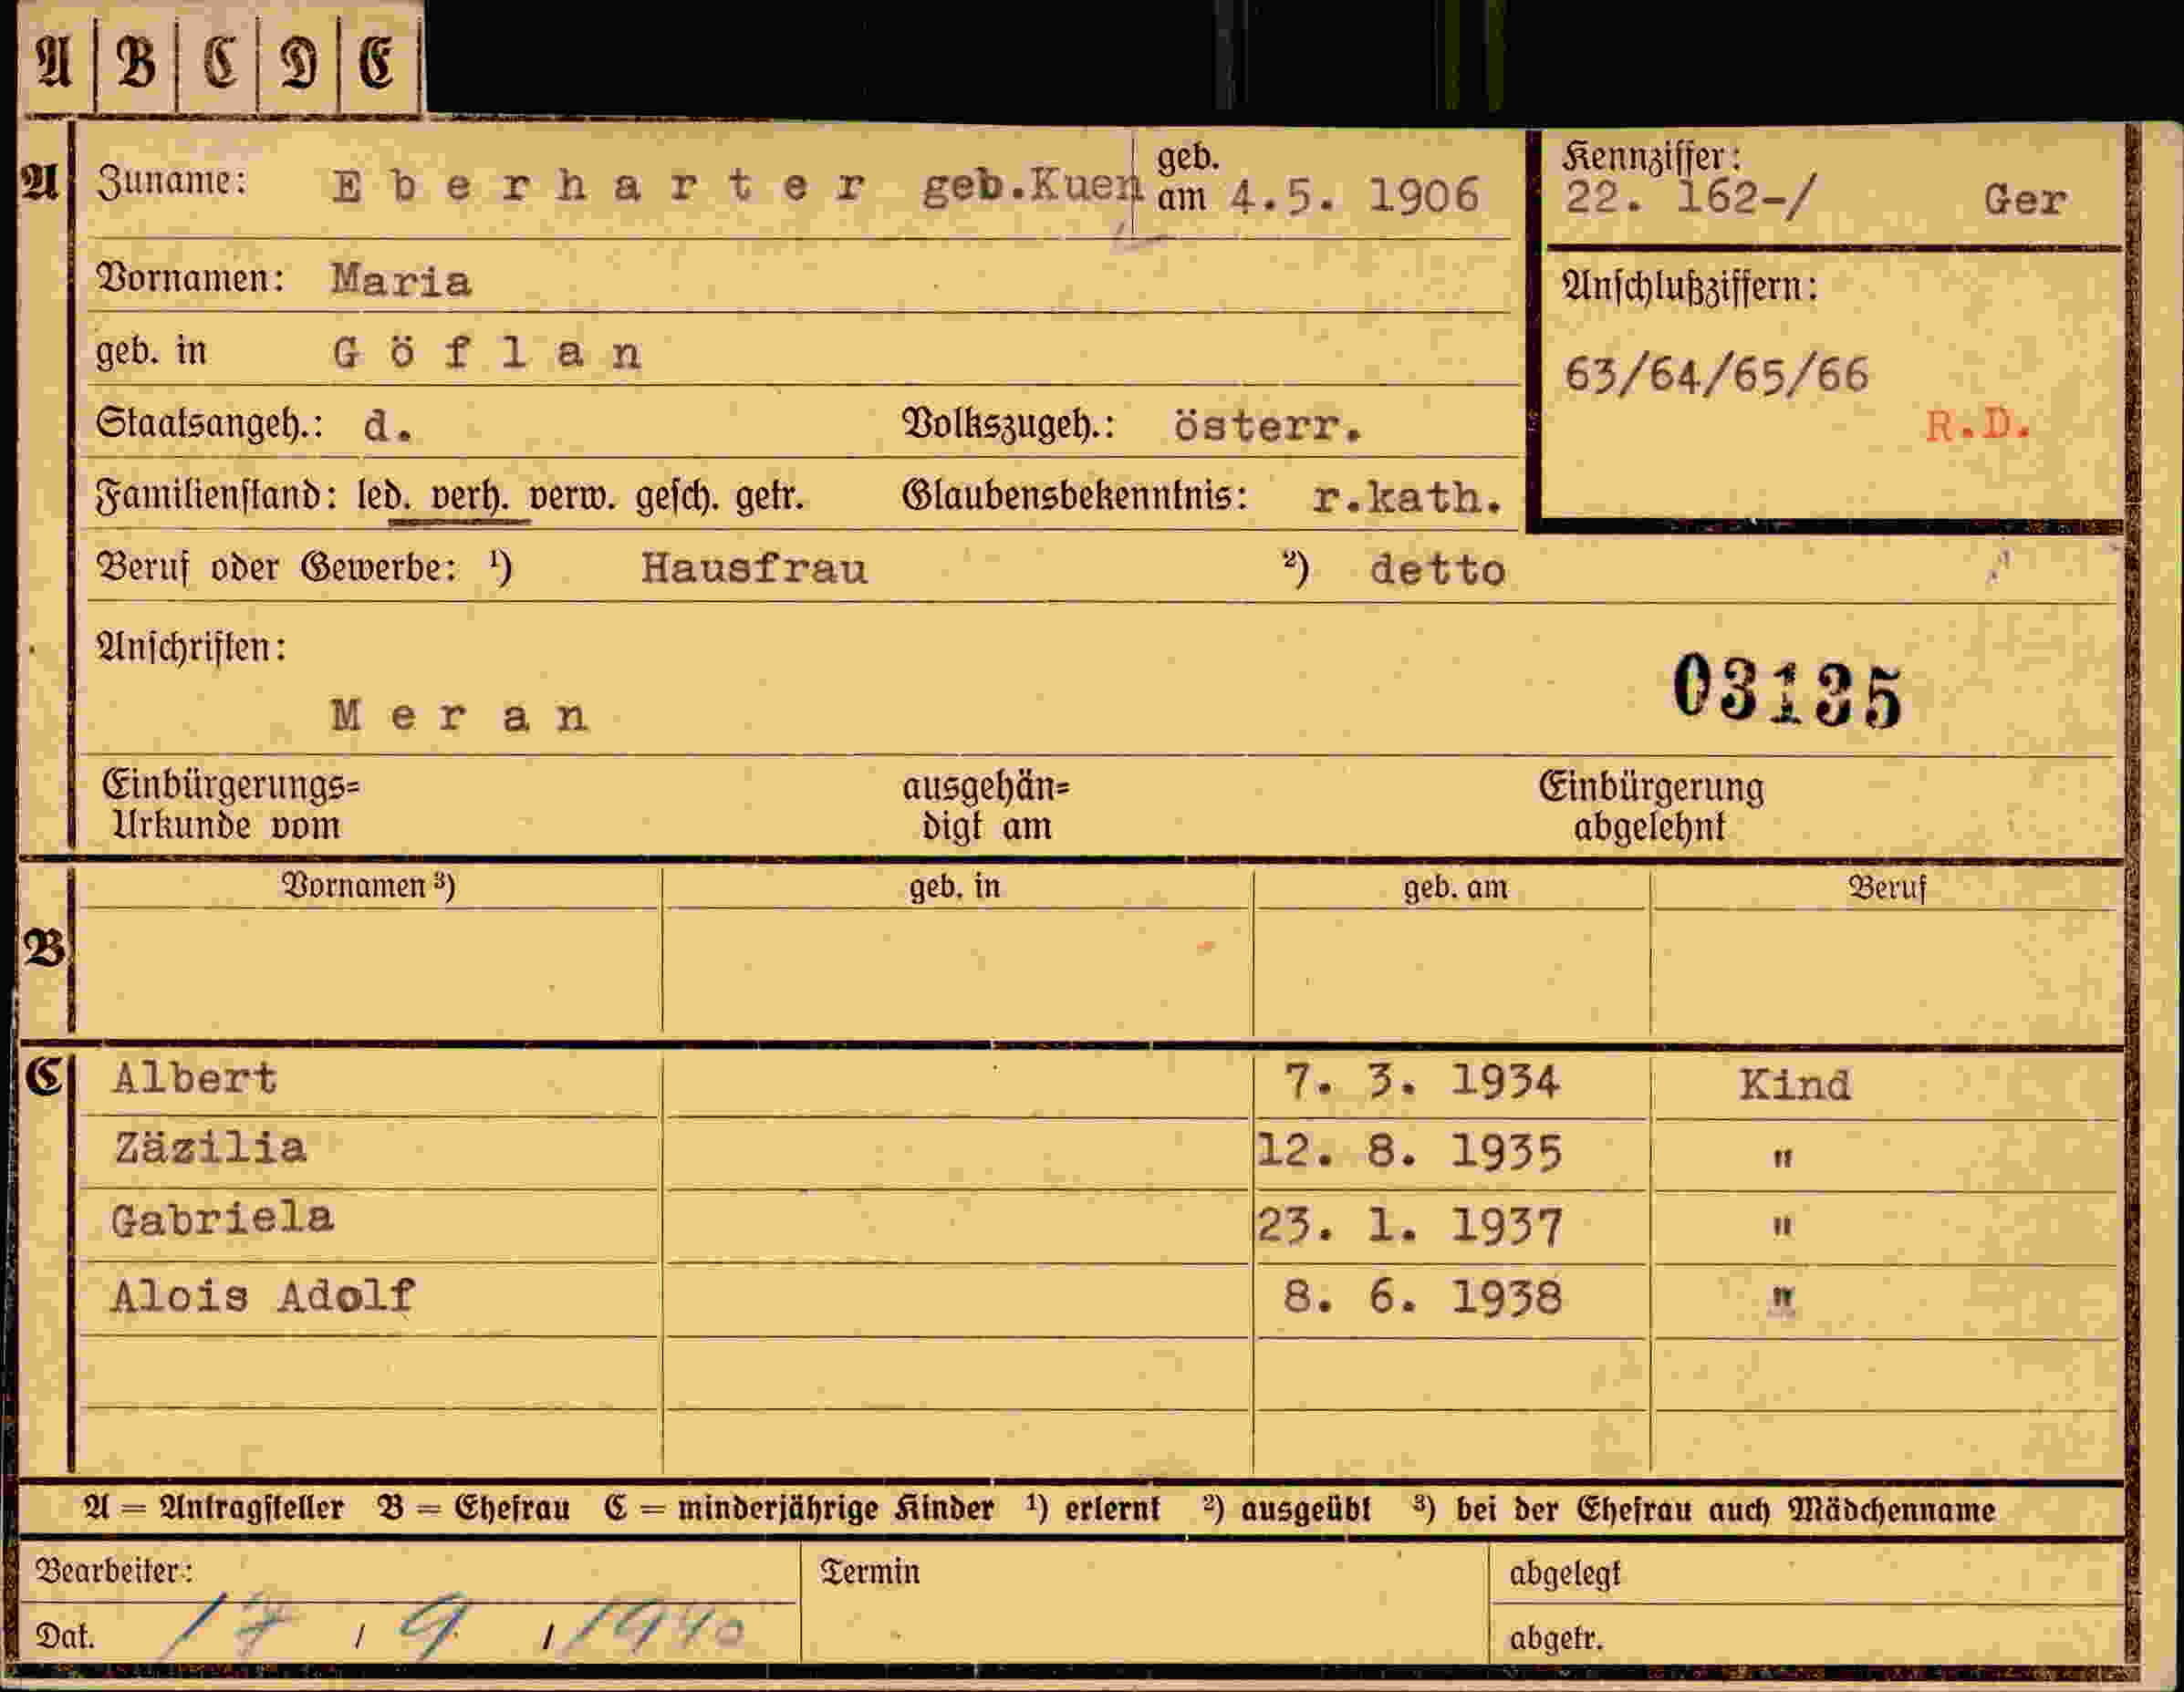 A B C D E
A Zuname: Eberharter geb.Kuen geb. am 4.5. 1906
Kennziffer: 22. 162-/ Ger
Vornamen: Maria
Anschlußziffern:
geb. in Göflan
63/64/65/66
R.D.
Staatsangeh.: d. Volkszugeh.: österr.
Familienstand: led. verh. verw. gesch. getr. Glaubensbekenntnis: r.kath.
Beruf oder Gewerbe: ¹) Hausfrau ²) detto
Anschriften:
Meran 03135
Einbürgerungs= ausgehän= Einbürgerung
Urkunde vom digt am abgelehnt
Vornamen ³) geb. in geb. am Beruf
B
C Albert 7. 3. 1934 Kind
Zäzilia 12. 8. 1935 "
Gabriela 23. 1. 1937 "
Alois Adolf 8. 6. 1938 "
A = Antragsteller B = Ehefrau C = minderjährige Kinder ¹) erlernt ²) ausgeübt ³) bei der Ehefrau auch Mädchenname
Bearbeiter: Termin abgelegt
Dat. 17 / 9 / 1940 abgetr.